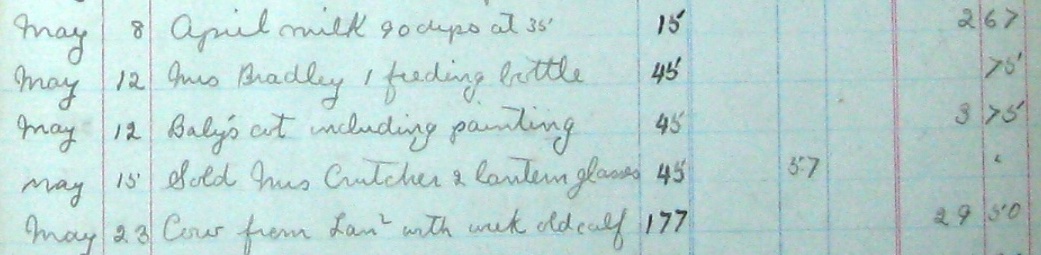 May 8 April milk 90 cups at 35 15 2 67
May 12 Mrs Bradley 1 feeding bottle 45 75
May 12 Baby's cot including painting 45 3 75
May 15 Sold Mrs Crutcher 2 lantern glasses 45 57
May 23 Cow from with week old calf 177 29 50